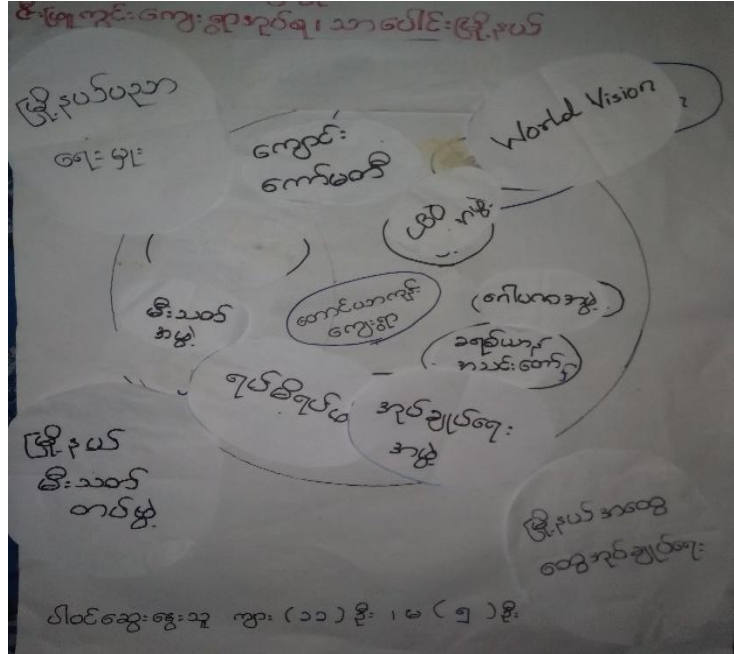 ဇီးဖြူကွင်းကျေးရွာအုပ်စု၊ သာပေါင်းမြို့နယ်
မြို့နယ်ပညာ
ရေးမှုး
ကျောင်း
ကော်မတီ
World Vision
အဖွဲ့
မီးသတ်
အဖွဲ့
တောင်ယာကုန်း
ကျေးရွာ
(ဂေါပကအဖွဲ့)
ခရစ်ယာန်
အသင်းတော်
ရပ်မိရပ်ဖ
အုပ်ချုပ်ရေး
အဖွဲ့
မြို့နယ်
မီးသတ်
တပ်ဖွဲ့
မြို့နယ်အထွေ
ထွေအုပ်ချုပ်ရေး
ပါဝင်ဆွေးနွေးသူ ကျား (၁၁) ဦး ၊ မ (၅) ဦး